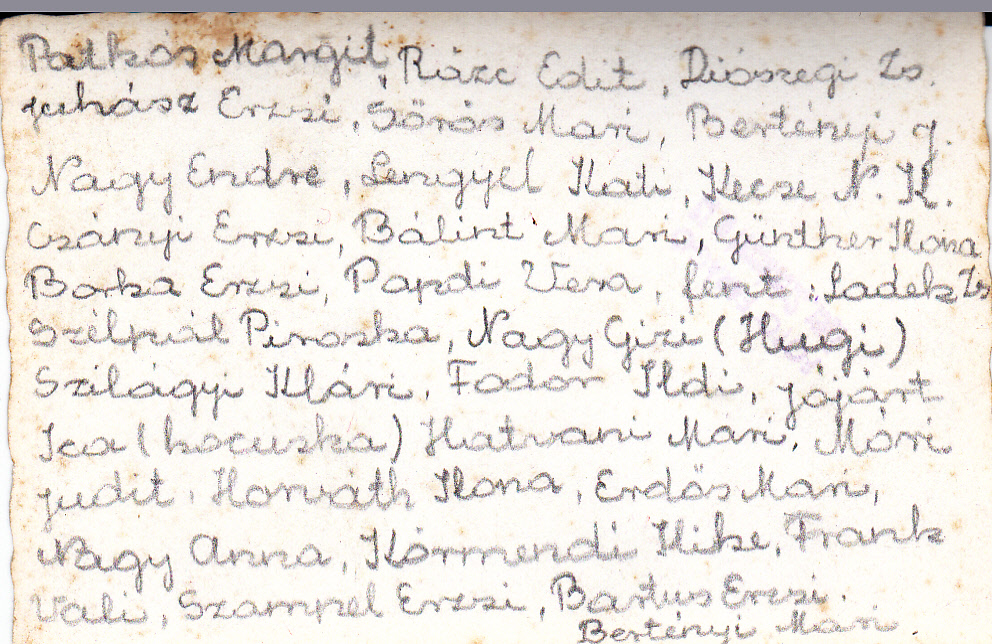 Patkós Margit, Rácz Edit, Diószegi Zs.
Juhász Erzsi, Sörös Mari, Bertényi J.
Nagy Endre, Lengyel Kati, Kecse N. K.
Csányi Erzsi, Bálint Mari, Günther Ilona
Borka Erzsi, Papdi Vera, fent: Ladek Zs
Szélpál Piroska, Nagy Gizi (Hugi)
Szilágyi Klári, Fodor Ildi, Jójárt
Ica (kocuska) Hatvani Mari, Móri
Judit, Horváth Ilona, Erdős Mari,
Nagy Anna, Körmendi Ilike, Frank
Vali, Szampel Erzsi, Bartus Erzsi.
Bertényi Mari.